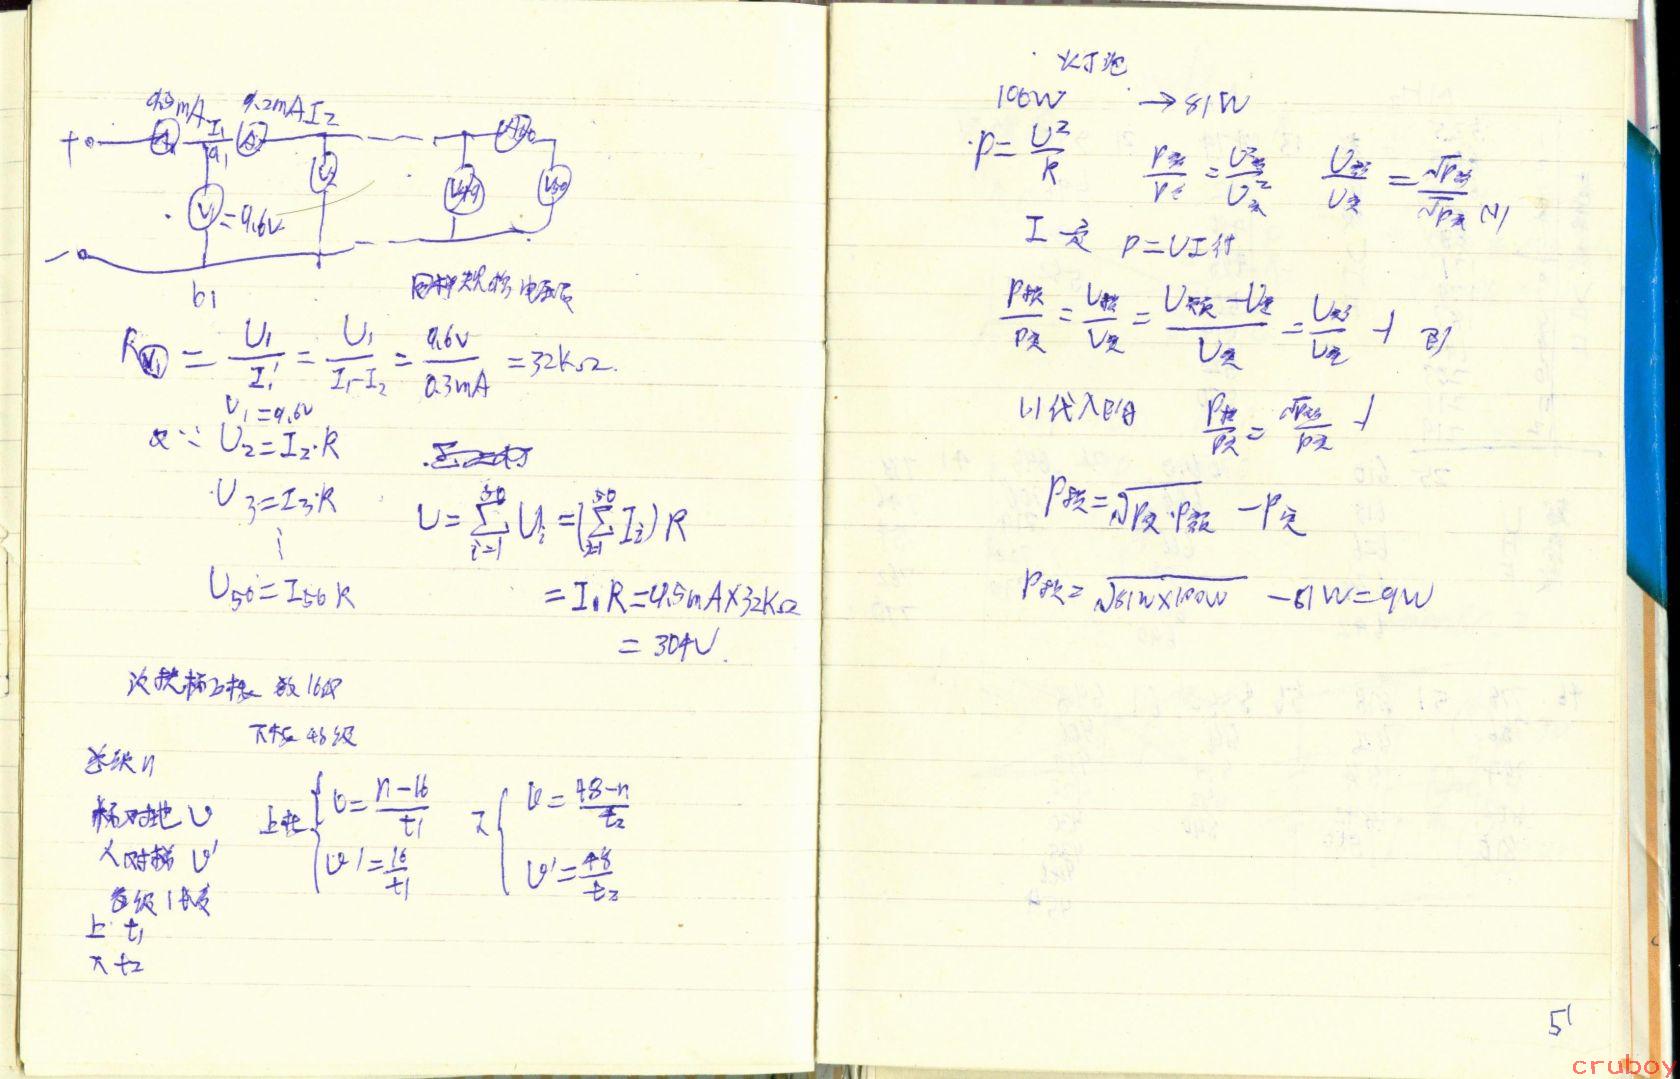 9.5mA I₁ 9.2mA I₂
+
a₁
A₂
V₁ = 9.6V
V₂
V₅₀
−
b₁
同样规格电压表
R_V₁ = U₁/I₁' = U₁/(I₁-I₂) = 9.6V/0.3mA = 32KΩ.
U₁ = 9.6V
又∵ U₂ = I₂·R
U₃ = I₃·R
U = ∑_{i=1}^{50} U_i = (∑_{i=1}^{50} I_i) R
U₅₀ = I₅₀R
= I₁R = 9.5mA×32KΩ
= 304V.
数16级
下 48级
总级n
梯对地 υ
人对梯 υ'
每级1长度
上 t₁
下 t₂
上 { υ = (n-16)/t₁
υ' = 16/t₁
下 { υ = (48-n)/t₂
υ' = 48/t₂
灯泡
100W → 81W
P = U²/R
P额/P实 = U²额/U²实
U额/U实 = √P额/√P实 (1)
I一定 P=UI付
P损/P实 = U损/U实 = (U额-U实)/U实 = U额/U实 -1
(1)代入
P损/P实 = √P额/P实 -1
P损 = √P实·P额 - P实
P损 = √81W×100W - 81W = 9W
51
cruboy